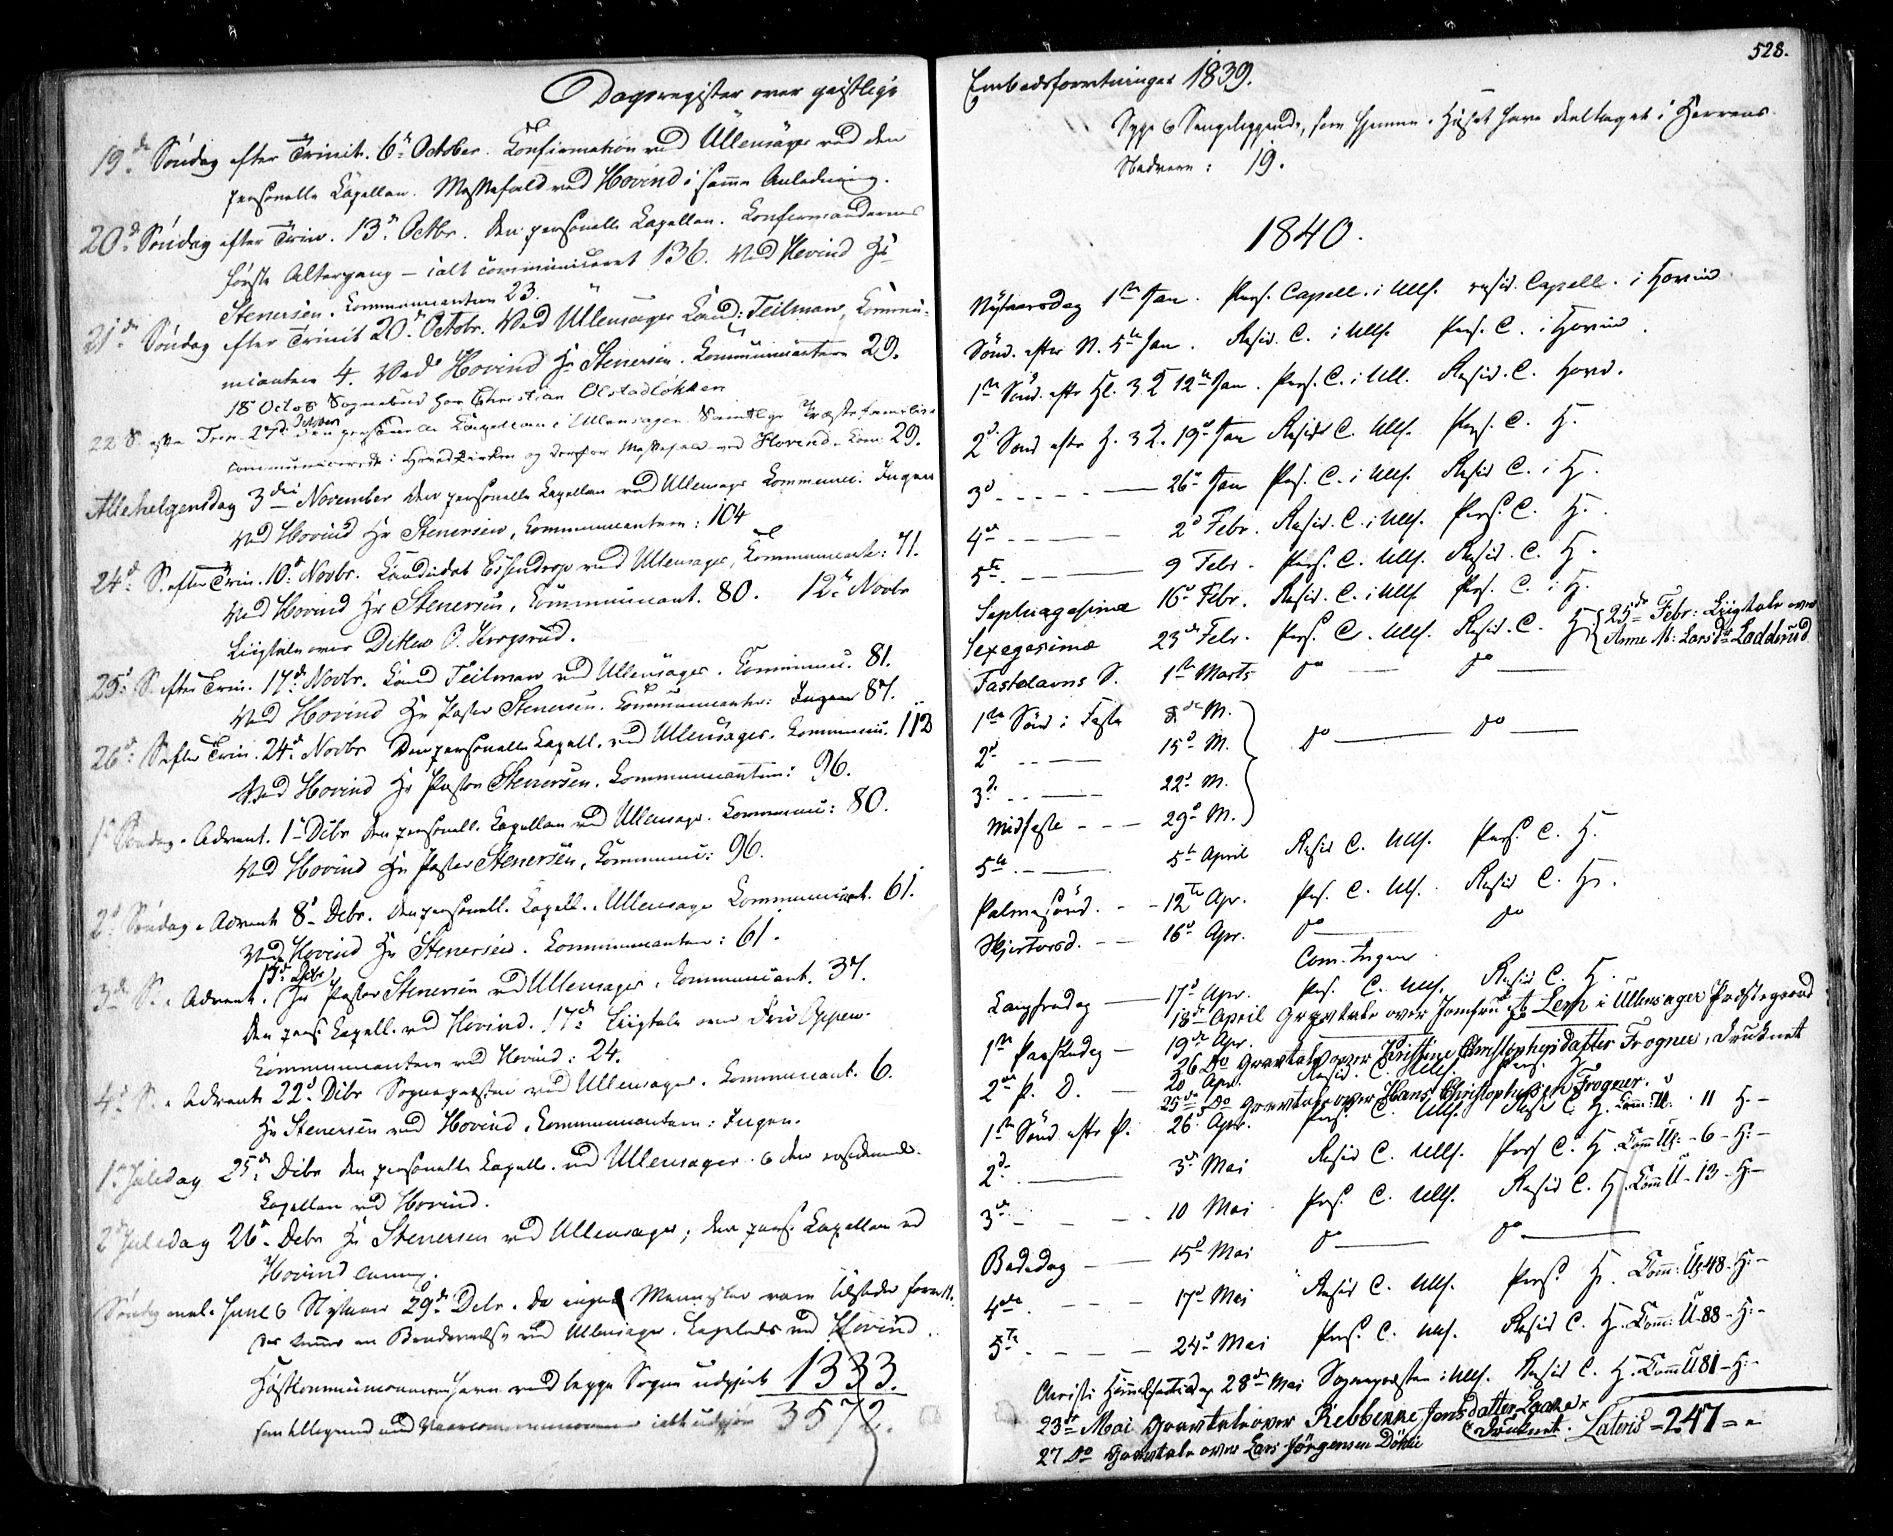 Dagsregister over geistlige
19de Søndag efter Trinit. 6te October. Confirmation ved Ullensager ved den
personelle Capellan. Messefald ved Hovind i samme Anledning.
20de Søndag efter Trin. 13de Octbr. Den personelle Capellan. Confirmandernes
første Altergang – ialt communiceret 136. Ved Hovind Hr
Stenersen. Communicantern 23.
21de Søndag efter Trinit 20de Octobr. Ved Ullensager Cand: Teilman, Commu-
nicantern 4. Ved Hovind Hr Stenersen. Communicantern 29.
18 Octob Sognebud hos Christian Olstadløkken
22 S. efter Trin. 27de October den personelle Capellan i Ullensager. Samtlige Præstefamilie
communicerede i Hovedkirken og derfor Messefald ved Hovind. Com: 29.
Allehelgensdag 3die November den personelle Capellan ved Ullensager Communic: Ingen
Ved Hovind Hr Stenersen, Communicantern: 104
24de S. efter Trin. 10de Novbr. Candidat ved Ullensager, Communicant: 71.
Ved Hovind Hr Stenersen, Communicant. 80. 12te Novbr
Liigtale over Ditlev O.
25de S. efter Trin. 17de Novbr. Cand Teilman ved Ullensager. Communic. 81.
Ved Hovind Hr Pastor Stenersen. Communicanter: Ingen 87.
26de S. efter Trin. 24de Novbr Den personelle Capell. ved Ullensager. Communic. 112
Ved Hovind Hr Pastor Stenersen. Communicantern: 96.
1ste Søndag i Advent. 1ste Decbr den personell. Capellan ved Ullensager. Communic: 80.
Ved Hovind Hr Pastor Stenersen, Communic: 96.
2den Søndag i Advent 8de Decbr. den personell. Capell. i Ullensager Communicant. 61.
Ved Hovind Hr Stenersen. Communicantern: 61.
3die S. i Advent. 15de Decbr Hr Pastor Stenersen ved Ullensager. Communicant. 37.
Den pers. Capell. ved Hovind. 17de Liigtale over Friv Oppen.
Communicantern ved Hovind: 24.
4de S. i Advent 22de Decbr Sognepræsten ved Ullensager. Communicant. 6.
Hr Stenersen ved Hovind, Communicantern: Ingen.
1ste Juledag 25de Decbr den personelle Capell. ved Ullensager. & den residerende
Capellan ved Hovind.
2den Juledag 26de Decbr Hr Stenersen ved Ullensager; den pers. Capellan ved
Hovind
Søndag mel. Juul & Nytaar 29de Decbr. Da ingen Mennesker vare tilstede
ved Ullensager. ved Hovind.
Høstcommunionernern have ved begge Sogne udgjort 1333.
ialt udgjør 3572.
528.
Embedsforretninger 1839.
Syge & Sengeliggende, som hjemme i Huset have deeltaget i Herrens
Nadvere: 19.
1840.
Nytaarsdag 1ste Jan. Pers. Capell. i Ulls. resid. Capell. i Hovin
Sønd. efter N. 5te Jan. Resid. C. i Ulls. Pers. C. i Hovin.
1ste Sønd. efter Hl. 3 K. 12te Jan. Pers. C. i Ull. Resid. C. Hovd.
2den Sønd efter H. 3 K. 19de Jan Resid C. Ulls. Pers. C. H.
3die - - - - — 26de Jan Pers. C. i Ulls. Resid C. i H.
4de - - - — 2den Febr. Resid. C. i Ulls. Pers. C. H.
5te - - — 9 Febr. Pers. C. Ulls. Resid. C. H.
Septuagesima 16de Febr. Resid. C. i Ulls Pers. C. i H.
Sexagesima 23de Febr. Pers. C. Ulls. Resid. C. H. { 25de Febr: Liigtale over
Anne M: Larsdr Ladderud
Fastelavns S. 1ste Marts do — do —
1ste Sønd i Faste 8de M.
2den - - — 15de M. do — do —
3die - - — 22de M.
Midfaste - - — 29de M.
5te - — 5te April Resid C. Ulls. Pers. C. H.
Palmesønd. - - 12te Apr. Pers. C. Ulls. Resid C. H.
Skjertorsd. - — 16de Apr. do — do
Com. Ingen.
Langfredag — 17de Apr. Pers. C. Ulls. Resid C. H.
18de April Gravtale over Jomfru Lerp i Ullensager Præstegaard
1ste Paaskedag — 19de Apr.
26 Do Gravtale over Kirstine Christophersdatter Frogner, Drucknet
2den P. D. — 20de Apr. Resid. C. Ulls. Pers. H.
25de Do Gravtale over Hans Christophersen Frogner.
1ste Sønd. efter P. 26de Apr. Pers. C. Ulls. Resid C. H. Comm: U. 11 H. –
2den — 3die Mai Resid C. Ulls. Pers C. H. Comm U: – 6 – H: –
3die - - - 10 Mai Pers. C. Ulls. Resid C. H. Comm U – 13 – H: –
Bededag - — 15de Mai do — do —
4de - - - 17de Mai Resid C. Ulls. Pers. H. Comm: U: 48. H: –
5te - - - 24de Mai Pers. C. Ulls. Resid C. H. Comm: U. 88 – H: –
Christi Himmelfartsdag 28de Mai Sognepræsten i Ulls. Resid C. H. Comm U 81 – H: –
23de Mai Gravtale over Rebbekke Jensdatter Laake
(Drucknet. Lateris – 247 = =
27 Do Gravtale over Lars Jörgensen Döhli